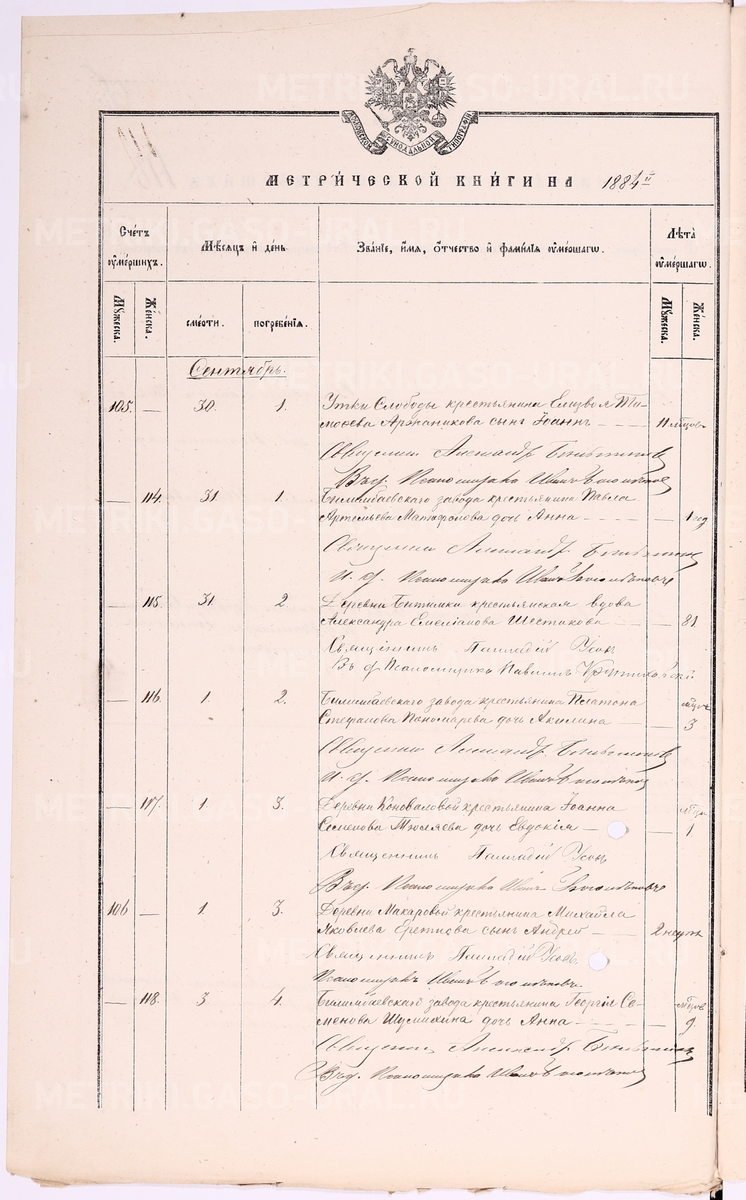 МОСКОВСКОЙ СѴНОДАЛЬНОЙ ТИПОГРАФІИ
МЕТРИ́ЧЕСКОЙ КНИ́ГИ НА 1884 г.
Сче́тъ ᲂу҆ме́ршихъ.
Мѣ́сяцъ и҆ де́нь.
Зва́нїе, и҆́мя, ѻ҆́тчество и҆ фами́лїя ᲂу҆ме́ршагѡ.
Лѣ́та ᲂу҆ме́ршагѡ.
Мꙋ́жеска.
Же́нска.
сме́рти.
погребе́нїя.
Мꙋ́жеска.
Же́нска.
Сентябрь.
105. — 30. 1. Утки Слободы крестьянина Елизвоя Ти-
моѳева Аржаникова сынъ Іоаннъ — 11 мѣсцовъ
Священникъ Александръ
Въ д. Псаломщика Иванъ Боголѣповъ
— 114. 31. 1. Билимбаевскаго завода крестьянина Павла
Артемьева Матафонова дочь Анна — 1 год
Священникъ Александръ
И. д. Псаломщика Иванъ Боголѣповъ
— 115. 31. 2 Деревни Битимки крестьянская вдова
Александра Емеліанова Шестакова — 81
Священникъ Палладій
Въ д. Псаломщика Павелъ
— 116. 1. 2. Билимбаевскаго завода крестьянина Платона
Стефанова Пономарева дочь Акилина — мѣсцъ 3
Священникъ Александръ
И. д. Псаломщика Иванъ Боголѣповъ
— 117. 1. 3. Деревни Коноваловой крестьянина Іоанна
Семенова Тюляева дочь Евдокія — мѣсц 1
Священникъ Палладій
Въ д. Псаломщика Иванъ Боголѣповъ
106 — 1. 3. Деревни Макаровой крестьянина Михаила
Яковлева Еретнова сынъ Андрей — 2 недѣли
Священникъ Палладій
Псаломщикъ Иванъ Боголѣповъ
— 118. 3 4. Билимбаевскаго завода крестьянина Георгія Се-
менова Шумихина дочь Анна — мѣсцов 9
Священникъ Александръ
Въ д. Псаломщика Иванъ Боголѣповъ
METRIKI.GASO-URAL.RU